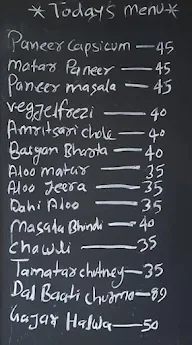 *Today's menu*
Paneer Capsicum — 45
Matar Paneer — 45
Paneer masala — 45
Veggelfrezi — 40
Amritsari chole — 40
Baigan Bharta — 40
Aloo matur — 35
Aloo Jeera — 35
Dahi Aloo — 35
Masala Bhindi — 40
Chawli — 35
Tamatar chutney — 35
Dal Baati churma — 89
Gajar Halwa — 50